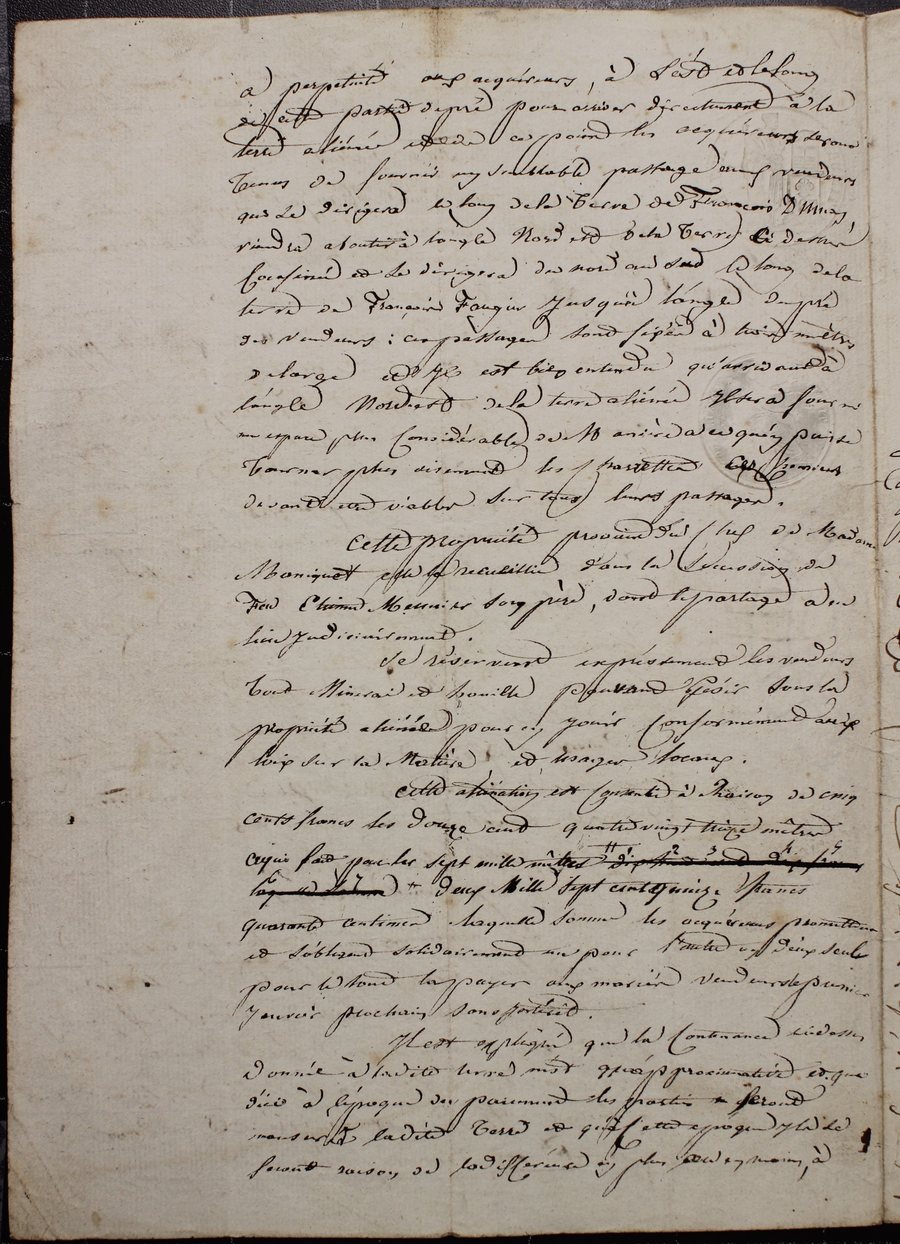 a perpetuité aux acquéreurs, à L'ést et le long
de cette partie de pré pour arriver directement à la
terre aliénée et de ce point les acquéreurs seront
tenus de fournir un semblable passage aux vendeurs
qui se dirigera le long de la terre de François
viendra aboutir à l'angle Nord est de la terre ci dessus
Confinée et se dirigera du nord au sud le long de la
terre de François Faugier jusqu'à l'angle du pré
des vendeurs : ces passages sont fixés à trois mètres
de large et Il est bien entendu qu'arrivant à
l'angle Nord est de la terre aliénée Il sera fourni
un espace plus Considérable de Manière a ce qu'on puisse
tourner plus aisement les charrettes ces chemins
devant etre viables sur tous leurs passages.
Cette propriété provient du Chef de Madame
Moniquet qui l'a recueillie dans la Succession de
Feu Etienne Meunier son père, dont le partage a eu
lieu judiciairement.
Se réservent expressement les vendeurs
tout Minerai et houille pouvant Gésir sous la
propriété aliénée pour en jouir Conformément aux
loix sur la Matière et usages locaux.
Cette aliénation est Consentie à Raison de cinq
cents francs les douze cent quatre vingt treize mètres
ce qui fait pour les sept mille mètres
deux Mille sept cent quinze francs
quarante centimes laquelle somme les acquéreurs promettent
et s'obligent solidairement un pour l'autre un d'eux seul
pour le tout la payer aux mariés vendeurs le premier
Janvier prochain sans intérêt.
Il est expliqué que la Contenance ci dessus
donnée à ladite terre n'est qu'approximative et que
d'ici à l'époque du paiement les parties feront
mesurer ladite terre et qu'à cette époque Il se
feront raison de la différence en plus ou en moins, à